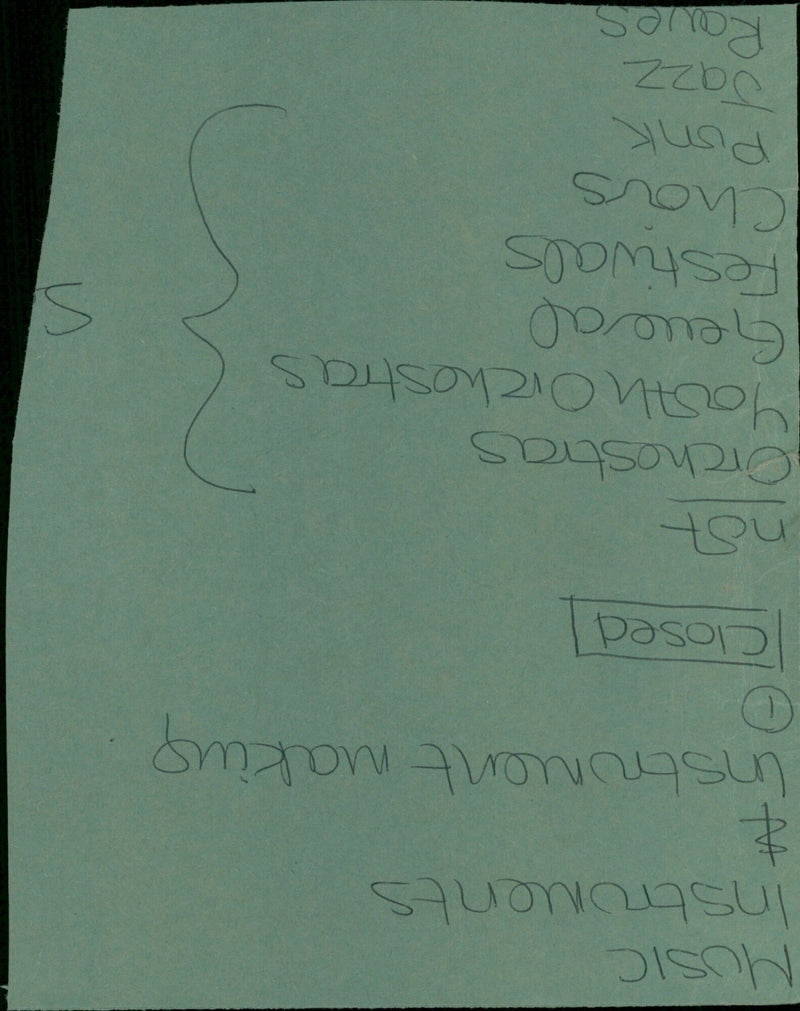 Music
Instruments
&
Instrument making
①
Closed
not
Orchestras
Youth Orchestras
General
Festivals
Choirs
Punk
Jazz
Raves